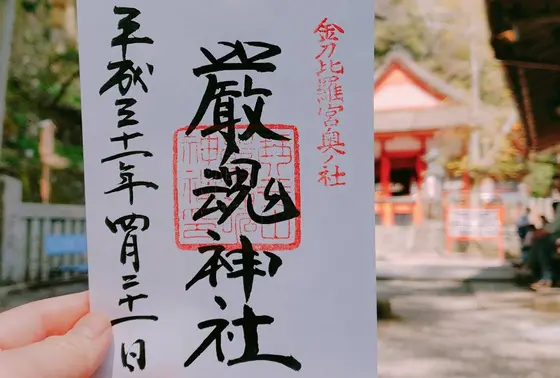 金刀比羅宮奥ノ社
嚴魂神社
平成三十一年四月二十一日